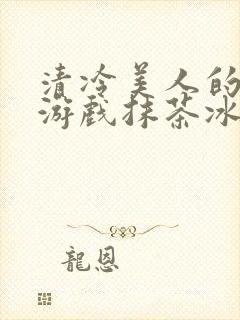 清冷美人的
游戏抹茶冰
龍恩